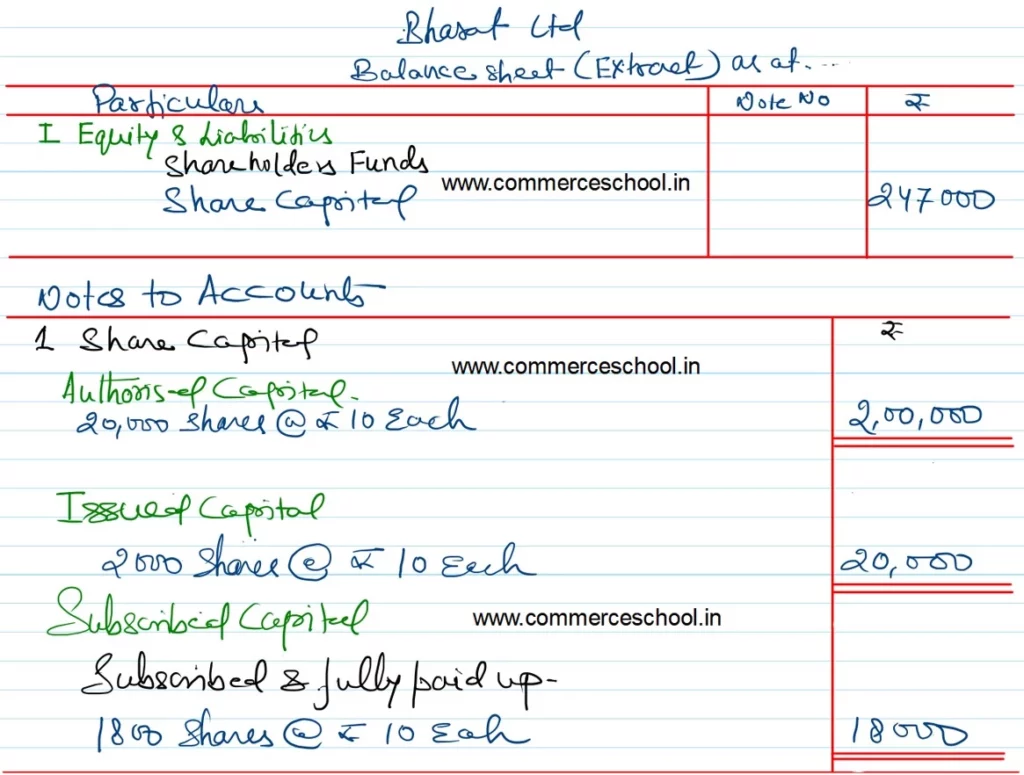 Bharat Ltd
Balance sheet (Extract) as at....
Particulars Note No ₹
I Equity & Liabilities
Shareholders Funds
www.commerceschool.in
Share Capital 247000
Notes to Accounts
1 Share Capital ₹
www.commerceschool.in
Authorised Capital.
20,000 Shares @ ₹ 10 Each 2,00,000
Issued Capital
2000 Shares @ ₹ 10 Each 20,000
Subscribed Capital www.commerceschool.in
Subscribed & fully paid up-
1800 Shares @ ₹ 10 Each 18000